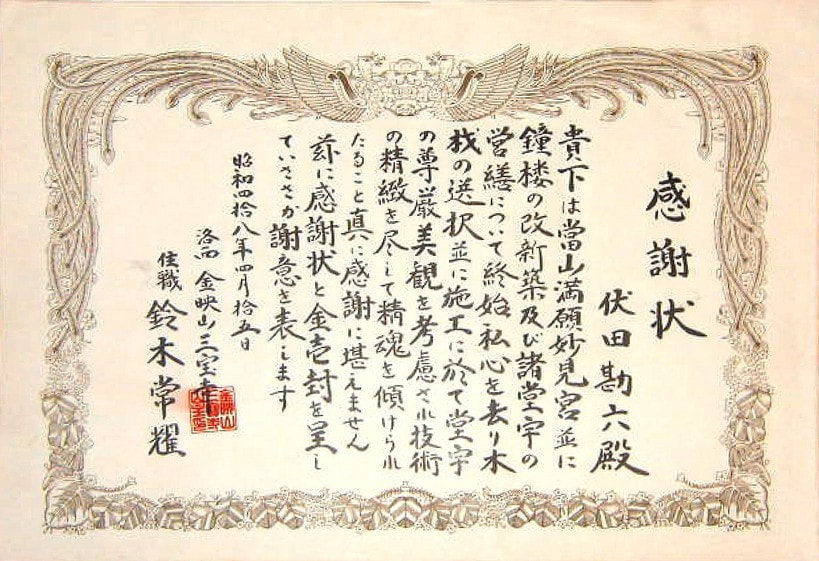 感謝状
伏田勘六殿
貴下は當山満願妙見宮並に
鐘楼の改新築及び諸堂宇の
営繕について終始私心を去り木
材の選択並に施工に於て堂宇
の尊厳美観を考慮され技術
の精緻を尽して精魂を傾けられ
たること真に感謝に堪えません
茲に感謝状と金壱封を呈し
ていささか謝意を表します
昭和四拾八年四月拾五日
洛西 金映山三宝寺
住職 鈴木常耀